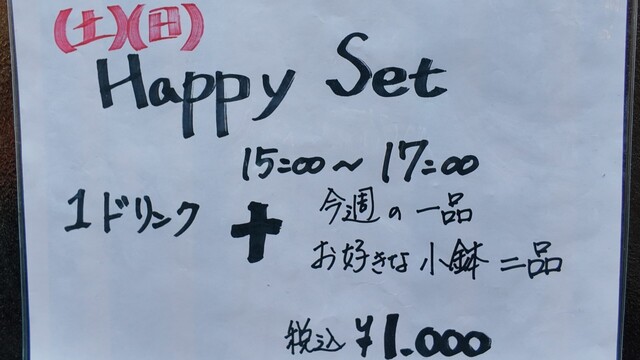 (土)(日)
Happy Set
15:00〜17:00
1ドリンク + 今週の一品
お好きな小鉢二品
税込¥1.000